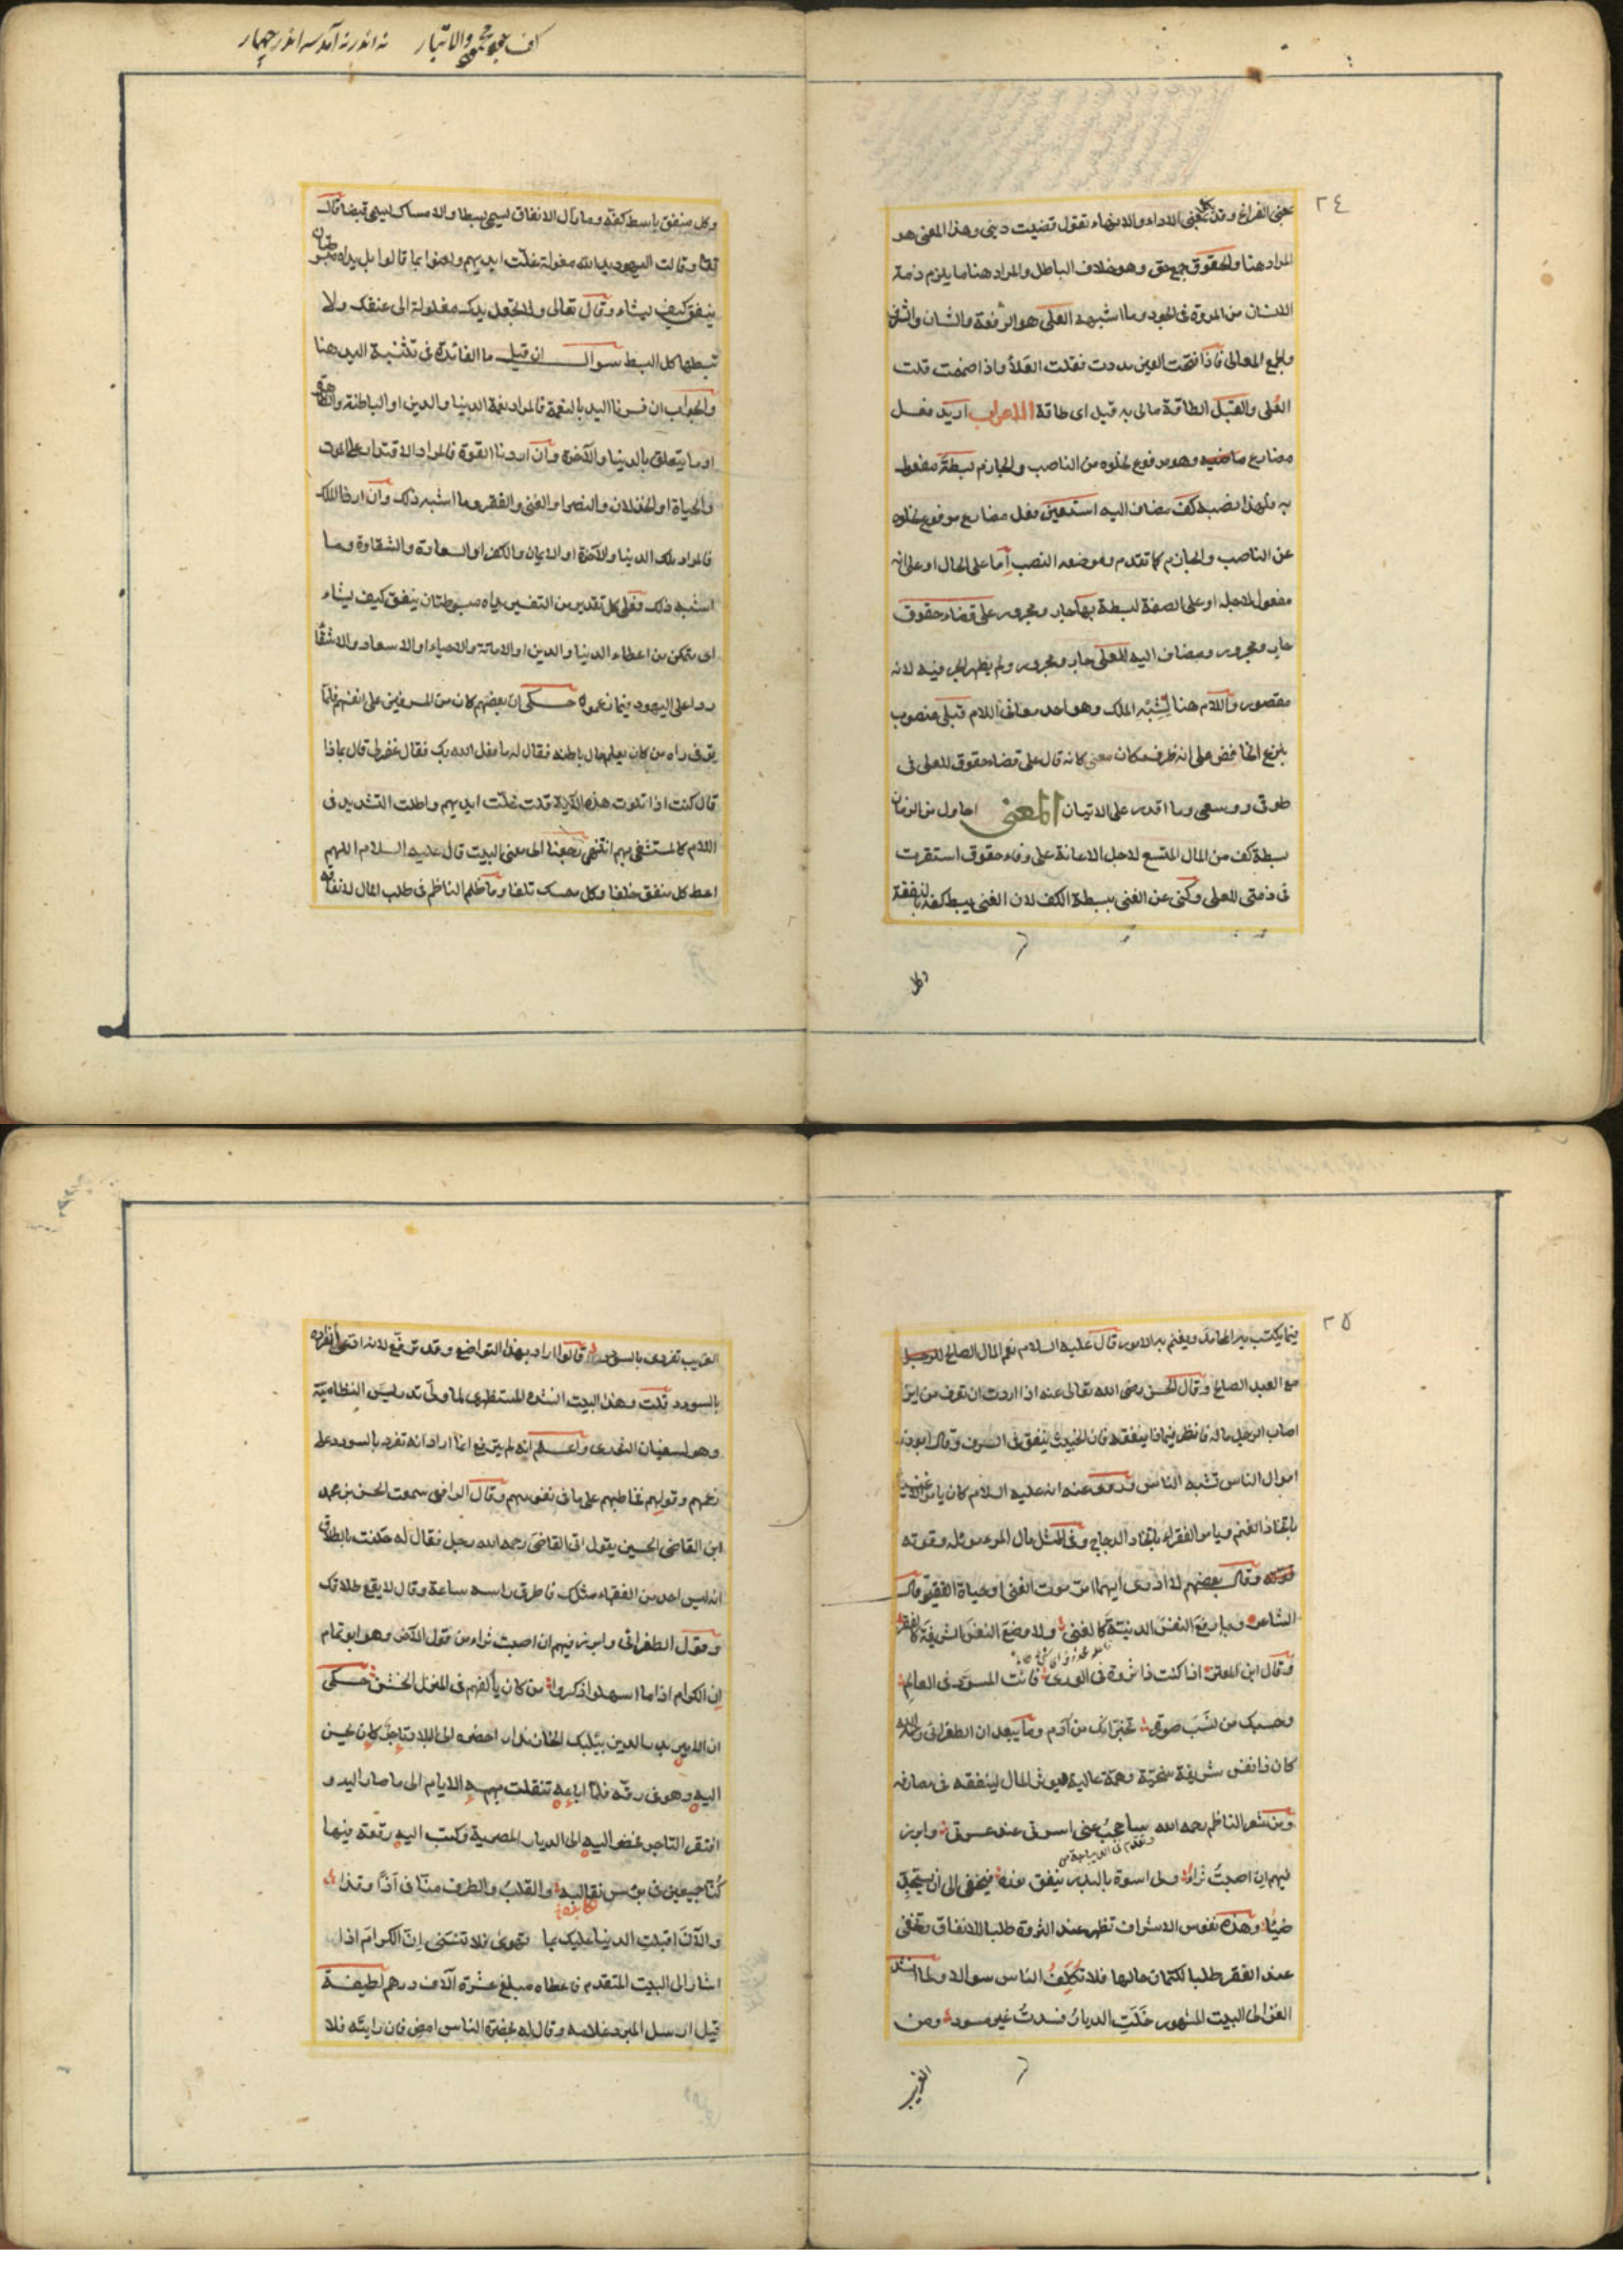 ٢٤
بمعنى الفراغ وقد يكون بمعنى الاداء والانهاء تقول قضيت دينى وهذا المعنى هو
المراد هنا والحقوق جمع حق وهو خلاف الباطل والمراد هنا ما يلزم ذمة
الانسان من المروة فى الجود وما اشبهه العلى هو الرفعة والشان والشرف
والجمع المعالى فاذا فتحت العين مددت فقلت العَلاء واذا ضممت قلت
العُلى والقِبَل الطاقة مالى به قبل اى طاقة الاعراب اريد فعل
مضارع وهو مرفوع لخلوه من الناصب والجازم بسطةَ مفعول
به ولهذا نصبه كف مضاف اليه استعين فعل مضارع مرفوع لخلوه
عن الناصب والجازم كما تقدم وموضعه النصب اما على الحال او على انه
مفعول لاجله او على الصفة لبسطة بها جار ومجرور على قضاء حقوق
جار ومجرور ومضاف اليه للعلى جار ومجرور ولم يظهر الجر فيه لانه
مقصور واللام هنا لشِبْه الملك وهو احد معانى اللام قبلى منصوب
بنزع الخافض على انه ظرف مكان معنى كانه قال على قضاء حقوق للعلى فى
طوقى ووسعى وما اقدر على الاتيان المعنى احاول من الزمان
بسطة كف من المال المتسع لاجل الاعانة على وفاء حقوق استقرت
فى ذمتى للعلى وكنى عن الغنى ببسطة الكف لان الغنى يبسط كفه بالنفقة
وكل
كف عبو مجمو والاتبار نه اندر نه آمد سه اندر چهار
وكل منفق باسط كفه وما زال الانفاق يسمى بسطا والامساك يسمى قبضا قال
تعالى وقالت اليهود يد الله مغلولة غلت ايديهم ولعنوا بما قالوا بل يداه مبسوطتان
ينفق كيف يشاء وقال تعالى ولا تجعل يدك مغلولة الى عنقك ولا
تبسطها كل البسط سوال ان قيل ما الفائدة فى تثنية اليد هنا
والجواب ان فسرنا اليد بالنعمة فالمراد نعمة الدنيا والدين او الباطنة والظاهرة
او ما يتعلق بالدنيا والآخرة وان اردنا القوة فالمراد الاقتدار على الموت
والحياة او الخذلان والنصر او الغنى والفقر وما اشبه ذلك وان اردنا الملك
فالمراد ملك الدنيا والآخرة او الايمان والكفر او السعادة والشقاوة وما
اشبه ذلك فعلى كل تقدير من التفسير يداه مبسوطتان ينفق كيف يشاء
اى متمكن من اعطاء الدنيا والدين او الاماتة والاحياء او الاسعاد والاشقاء
ردا على اليهود فيما زعموه حكى ان بعضهم كان من المسرفين على انفسهم فلما
توفى راه من كان يعلم حال باطنه فقال له ما فعل الله بك فقال غفر لى قال بماذا
قال كنت اذا تلوت هذه الآية قلت غلّت ايديهم واطلت التشديد فى
اللام كالمتشفى بهم انتهى رجعنا الى معنى البيت قال عليه السلام اللهم
اعط كل منفق خلفا وكل ممسك تلفا وما ظلم الناظم فى طلب المال لانفاقه
٢٥
فيما يكتسب به المحامد ويغنم به الاجور قال عليه السلام نعم المال الصالح للرجل
مع العبد الصالح وقال الحسن رضى الله تعالى عنه اذا اردت ان تعرف من اين
اصاب الرجل ماله فانظر فيماذا ينفقه فان الخبيث ينفق فى السرف وقال ابو ذر
اموال الناس تشبه الناس وروى عنه انه عليه السلام كان يامر الاغنياء
باتخاذ الغنم ويامر الفقراء باتخاذ الدجاج وفى المثل مال المرء موئله وقوته
وقال بعضهم لا ادرى ايهما امر موت الغنى او حياة الفقير وقال
الشاعر وما رفع النفسَ الدنيّةَ كالغنى ولا وضع النفسَ الشريفة كالفقر
وقال ابن المعتز اذا كنت ذا ثروة فى الورى فانت المسوّد فى العالم
وحسبك من نسَبٍ صورةٌ تخبر انك من آدم وما يبعد ان الطغرائى رحمه الله
كان ذا نفس شريفة سخيّة وهمّة عالية يؤثر المال لينفقه فى مصارفه
ومن شعر الناظم رحمه الله ساحجُب عنى اسرتى عند عسرتى وابرز
فيهم ان اصبتُ ثراءً ولى اسوة بالبدر ينفق نوره فيخفى الى ان يستجِدّ
ضياءً وهذه نفوس الاشراف تظهر عند الثروة طلبا للانفاق وتخفى
عند الفقر طلبا لكتمان حالها فلا تكلِّفُ الناس سوالا ولما انشد
الغزالى البيت المشهور خَلَتِ الديارُ فسدتُ غير مسود ومن
الغريب
الغريب تفردى بالسودد قالوا اراد بهذا التواضع وقد ترفّع لانه ادعى انفراده
بالسودد قلت وهذا البيت انشده المستظهرى لما ولى تدريس النظاميّة
وهو لسفيان الثورى واعلم انه لم يترفع انما اراد انه تفرد بالسودد على
زعمهم وقولهم فخاطبهم على ما فى نفوسهم وقال الرافعى سمعت الحسن بن محمد
ابن القاضى الحسين يقول اتى القاضى رحمه الله رجل فقال له حلفت بالطلاق
انه ليس احد من الفقهاء مثلك فاطرق راسه ساعة وقال لا يقع طلاقك
وقول الطغرائى وابرز فيهم ان اصبت ثراء من قول الآخر وهو ابو تمام
ان الكرام اذا ما اسهلوا ذكروا من كان يألفهم فى المنزل الخشن حكى
ان الامير بدر الدين بيلبك الخازندار احضره الى البلاد تاجرٌ كان يحسن
اليه وهو فى رقّه فلمّا اباعه تنقلت بهم الايام الى ما صار اليه و
افتقر التاجر فحضر اليه الى الديار المصرية وكتب اليه رقعة فيها
كُنّا جميعين فى بؤس نقاليه والقلبُ والطرف منّا فى اذًا وقذا
نكابده
والآنَ اقبلت الدنيا عليك بما تهوى فلا تنسَنى إنّ الكرامَ اذا
اشار الى البيت المتقدم فاعطاه مبلغ عشرة آلاف درهم لطيفة
قيل ارسل المبرد غلامه وقال له بحضرة الناس امض فان رايته فلا